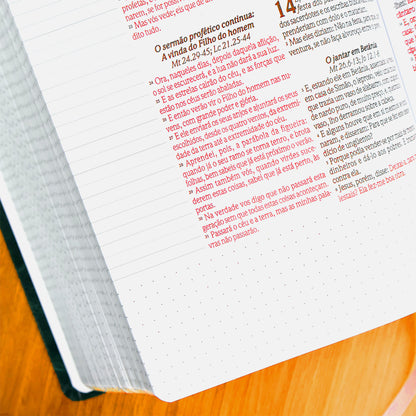 tarem, se for po
profetas.
²³ Mas vós vede; eis que de a
dito tudo.
O sermão profético continua:
A vinda do Filho do homem
Mt 24.29-45; Lc 21.25-44
²⁴ Ora, naqueles dias, depois daquela aflição,
o sol se escurecerá, e a lua não dará a sua luz.
²⁵ E as estrelas cairão do céu, e as forças que
estão nos céus serão abaladas.
²⁶ E então verão vir o Filho do homem nas nu-
vens, com grande poder e glória.
²⁷ E ele enviará os seus anjos e ajuntará os seus
escolhidos, desde os quatro ventos, da extremi-
dade da terra até a extremidade do céu.
²⁸ Aprendei, pois, a parábola da figueira:
quando já o seu ramo se torna tenro, e brota
folhas, bem sabeis que já está próximo o verão.
²⁹ Assim também vós, quando virdes suce-
derem estas coisas, sabei que já está perto, às
portas.
³⁰ Na verdade vos digo que não passará esta
geração sem que todas estas coisas aconteçam.
³¹ Passará o céu e a terra, mas as minhas pala-
vras não passarão.
14
festa dos
dos sacerdotes e os escribas
prenderiam com dolo e o
² Mas eles diziam: Não na festa, para que
ventura, se não faça alvoroço entre
O jantar em Betânia
Mt 26.6-13; Jo 12.1-8
³ E, estando ele em Betânia, assentado
em casa de Simão, o leproso, veio uma
que trazia um vaso de alabastro, com
nardo puro, de muito preço, e quebrando o
vaso, lho derramou sobre a cabeça.
⁴ E alguns houve que em si mesmos se
ram, e disseram: Para que se fez este
dício de unguento?
⁵ Porque podia vender-se por mais de
dinheiros e dá-lo aos pobres. E
contra ela.
⁶ Jesus, porém, disse: Deixai-a,
lestais? Ela fez-me boa obra.